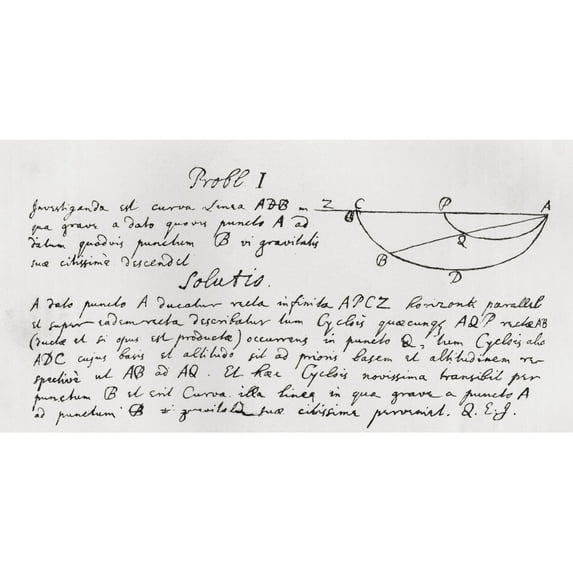 Probl I
Investiganda est curva Linea ADB in
qua grave a dato quovis puncto A ad
datum quodvis punctum B vi gravitatis
suæ citissimè descendet
Z C P A
B Q
D
Solutio.
A dato puncto A ducatur recta infinita APCZ horizonti parallela
et super eadem recta describatur tum Cyclois quæcunq AQP rectæ AB
(ductæ et si opus est productæ) occurrens in puncto Q, tum Cyclois alia
ADC cujus basis et altitudo sit ad prioris basem et altitudinem re-
spectivè ut AB ad AQ. Et hæc Cyclois novissima transibit per
punctum B et erit Curva illa linea in qua grave a puncto A
ad punctum B vi gravitatis suæ citissime perveniet. Q. E. J.